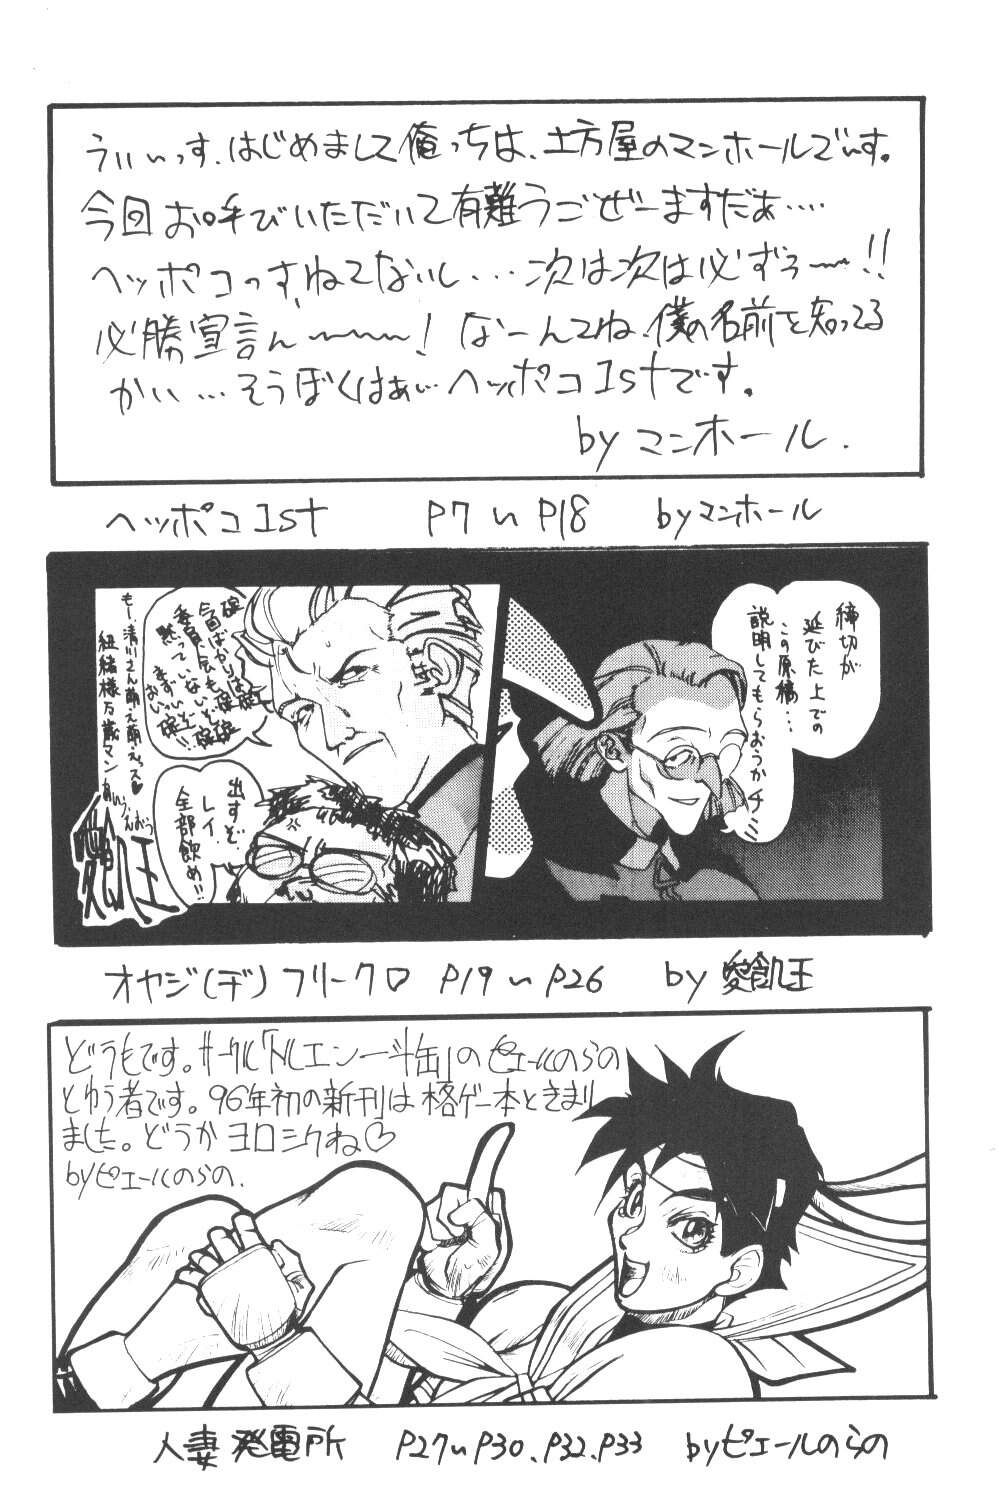 うぃぃっす、はじめまして俺っちは、土方屋のマンホールでぃす。
今回お呼びいただいて有難うごぜーますだぁ‥‥
ヘッポコっすねてないし…次は次は必ずぅー!!
必勝宣言んー! なーんてね、僕の名前を知ってる
かい…そうぼくはぁぃヘッポコ1stです。
by マンホール.
ヘッポコ1st P7〜P18 byマンホール
締切が
延びた上での
この原稿…
説明してもらおうか
碇
今回ばかりは
委員会も
黙っていないぞ
まずいぞ
おい、碇!!
もー清川さん萌え萌えっス♡
紐緒様万歳マン
出すぞ
レイ.
全部飲め!!
餓王
オヤジ(ヂ)フリークロ P19〜P26 by 愛餓王
どうもです。サークル「トルエン一斗缶」のピエールのらの
とゆう者です。96年初の新刊は格ゲー本ときまり
ました。どうかヨロシクね♡
byピエールのらの.
人妻発電所 P27〜P30、P32、P33 byピエールのらの